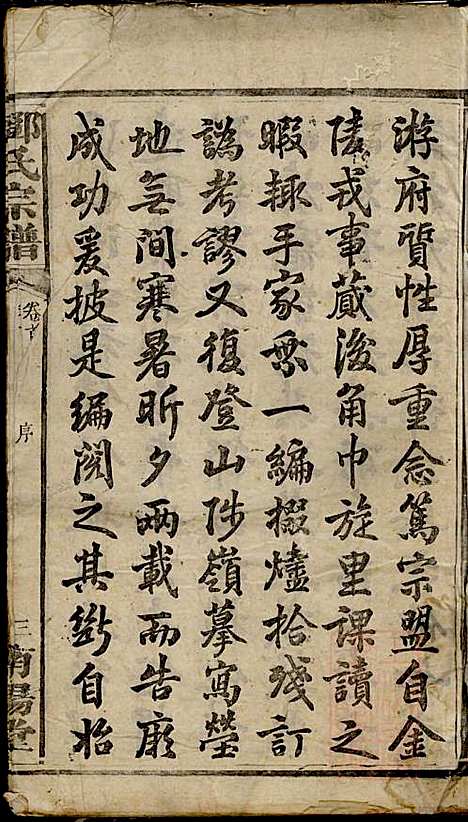 游府質性厚重念篤宗盟自金
陵戎事蕆浚角巾旋里課讀之
暇輙手家乗一編掇燼拾殘訂
譌考謬又復登山陟嶺摹寫塋
地無間寒暑昕夕兩載而告厥
成功爰披是編閱之其斷自始
鄧氏宗譜
卷首
序
三
南陽堂